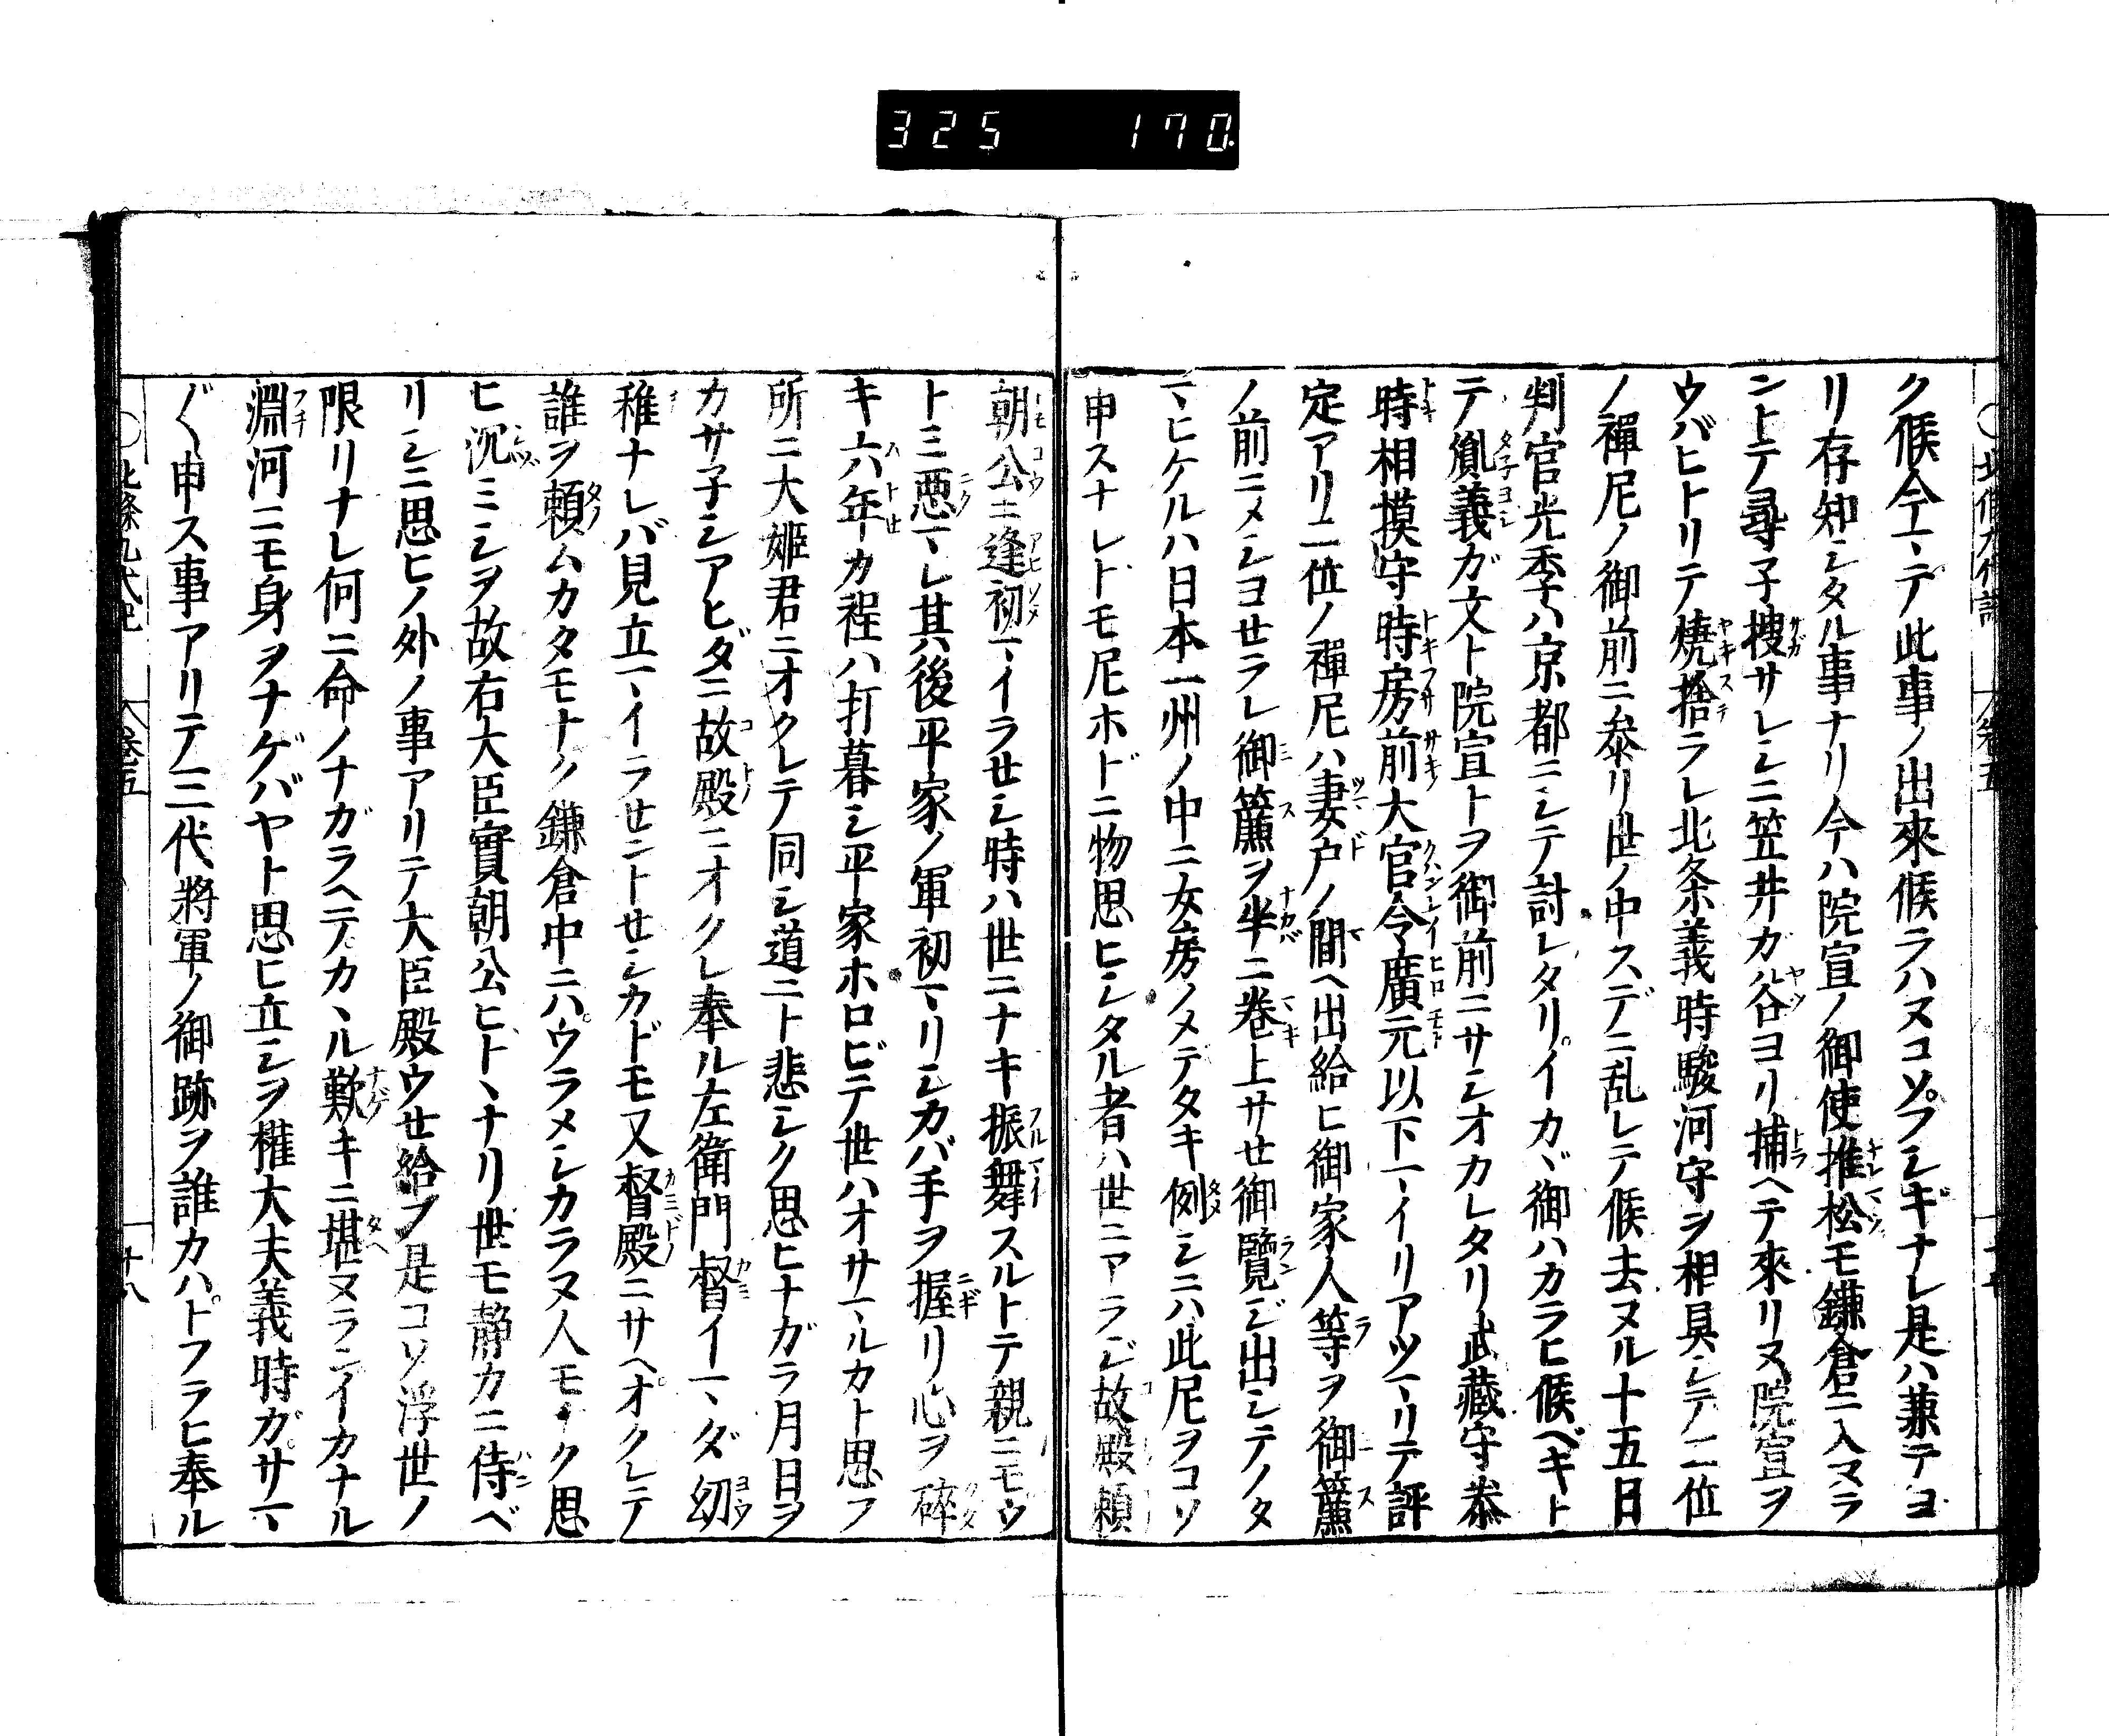 325 170
ク候今マデ此事ノ出來候ラハヌコソフシギナレ是ハ兼テヨ
リ存知シタル事ナリ今ハ院宣ノ御使推松モ鎌倉ニ入マラ
ントテ尋子捜サレシニ笠井カ谷ヨリ捕ヘテ來リヌ院宣ヲ
ウバヒトリテ燒捨ラレ北条義時駿河守ヲ相具シテ二位
ノ禪尼ノ御前ニ参リ世ノ中スデニ乱レテ候去ヌル十五日
判官光季ハ京都ニシテ討レタリイカヾ御ハカラヒ候ベキト
テ胤義ガ文ト院宣トヲ御前ニサシオカレタリ武藏守泰
時相摸守時房前大官令廣元以下マイリアツマリテ評
定アリ二位ノ禪尼ハ妻戸ノ間ヘ出給ヒ御家人等ヲ御簾
ノ前ニメシヨせラレ御簾ヲ半ニ卷上サせ御覽ジ出シテノタ
マヒケルハ日本一州ノ中ニ女房ノメデタキ例シニハ此尼ヲコソ
申スナレトモ尼ホドニ物思ヒシタル者ハ世ニアラジ故殿頼
朝公ニ逢初マイラせシ時ハ世ニナキ振舞スルトテ親ニモウ
トミ惡マレ其後平家ノ軍初マリシカバ手ヲ握リ心ヲ碎
キ六年カ程ハ打暮シ平家ホロビテ世ハオサマルカト思フ
所ニ大姫君ニオクレテ同シ道ニト悲シク思ヒナガラ月日ヲ
カサ子シアヒダニ故殿ニオクレ奉ル左衛門督イマダ幼
稚ナレバ見立マイラせントせシカドモ又督殿ニサヘオクレテ
誰ヲ頼ムカタモナク鎌倉中ニハウラメシカラヌ人モナク思
ヒ沉ミシヲ故右大臣實朝公ヒトヽナリ世モ静カニ侍ベ
リシニ思ヒノ外ノ事アリテ大臣殿ウせ給フ是コソ浮世ノ
限リナレ何ニ命ノナガラヘテカヽル歎キニ堪ヌランイカナル
淵河ニモ身ヲナゲバヤト思ヒ立シヲ權大夫義時ガサマ
〲申ス事アリテ三代將軍ノ御跡ヲ誰カハトフラヒ奉ル
○北條九代記 卷五 十八